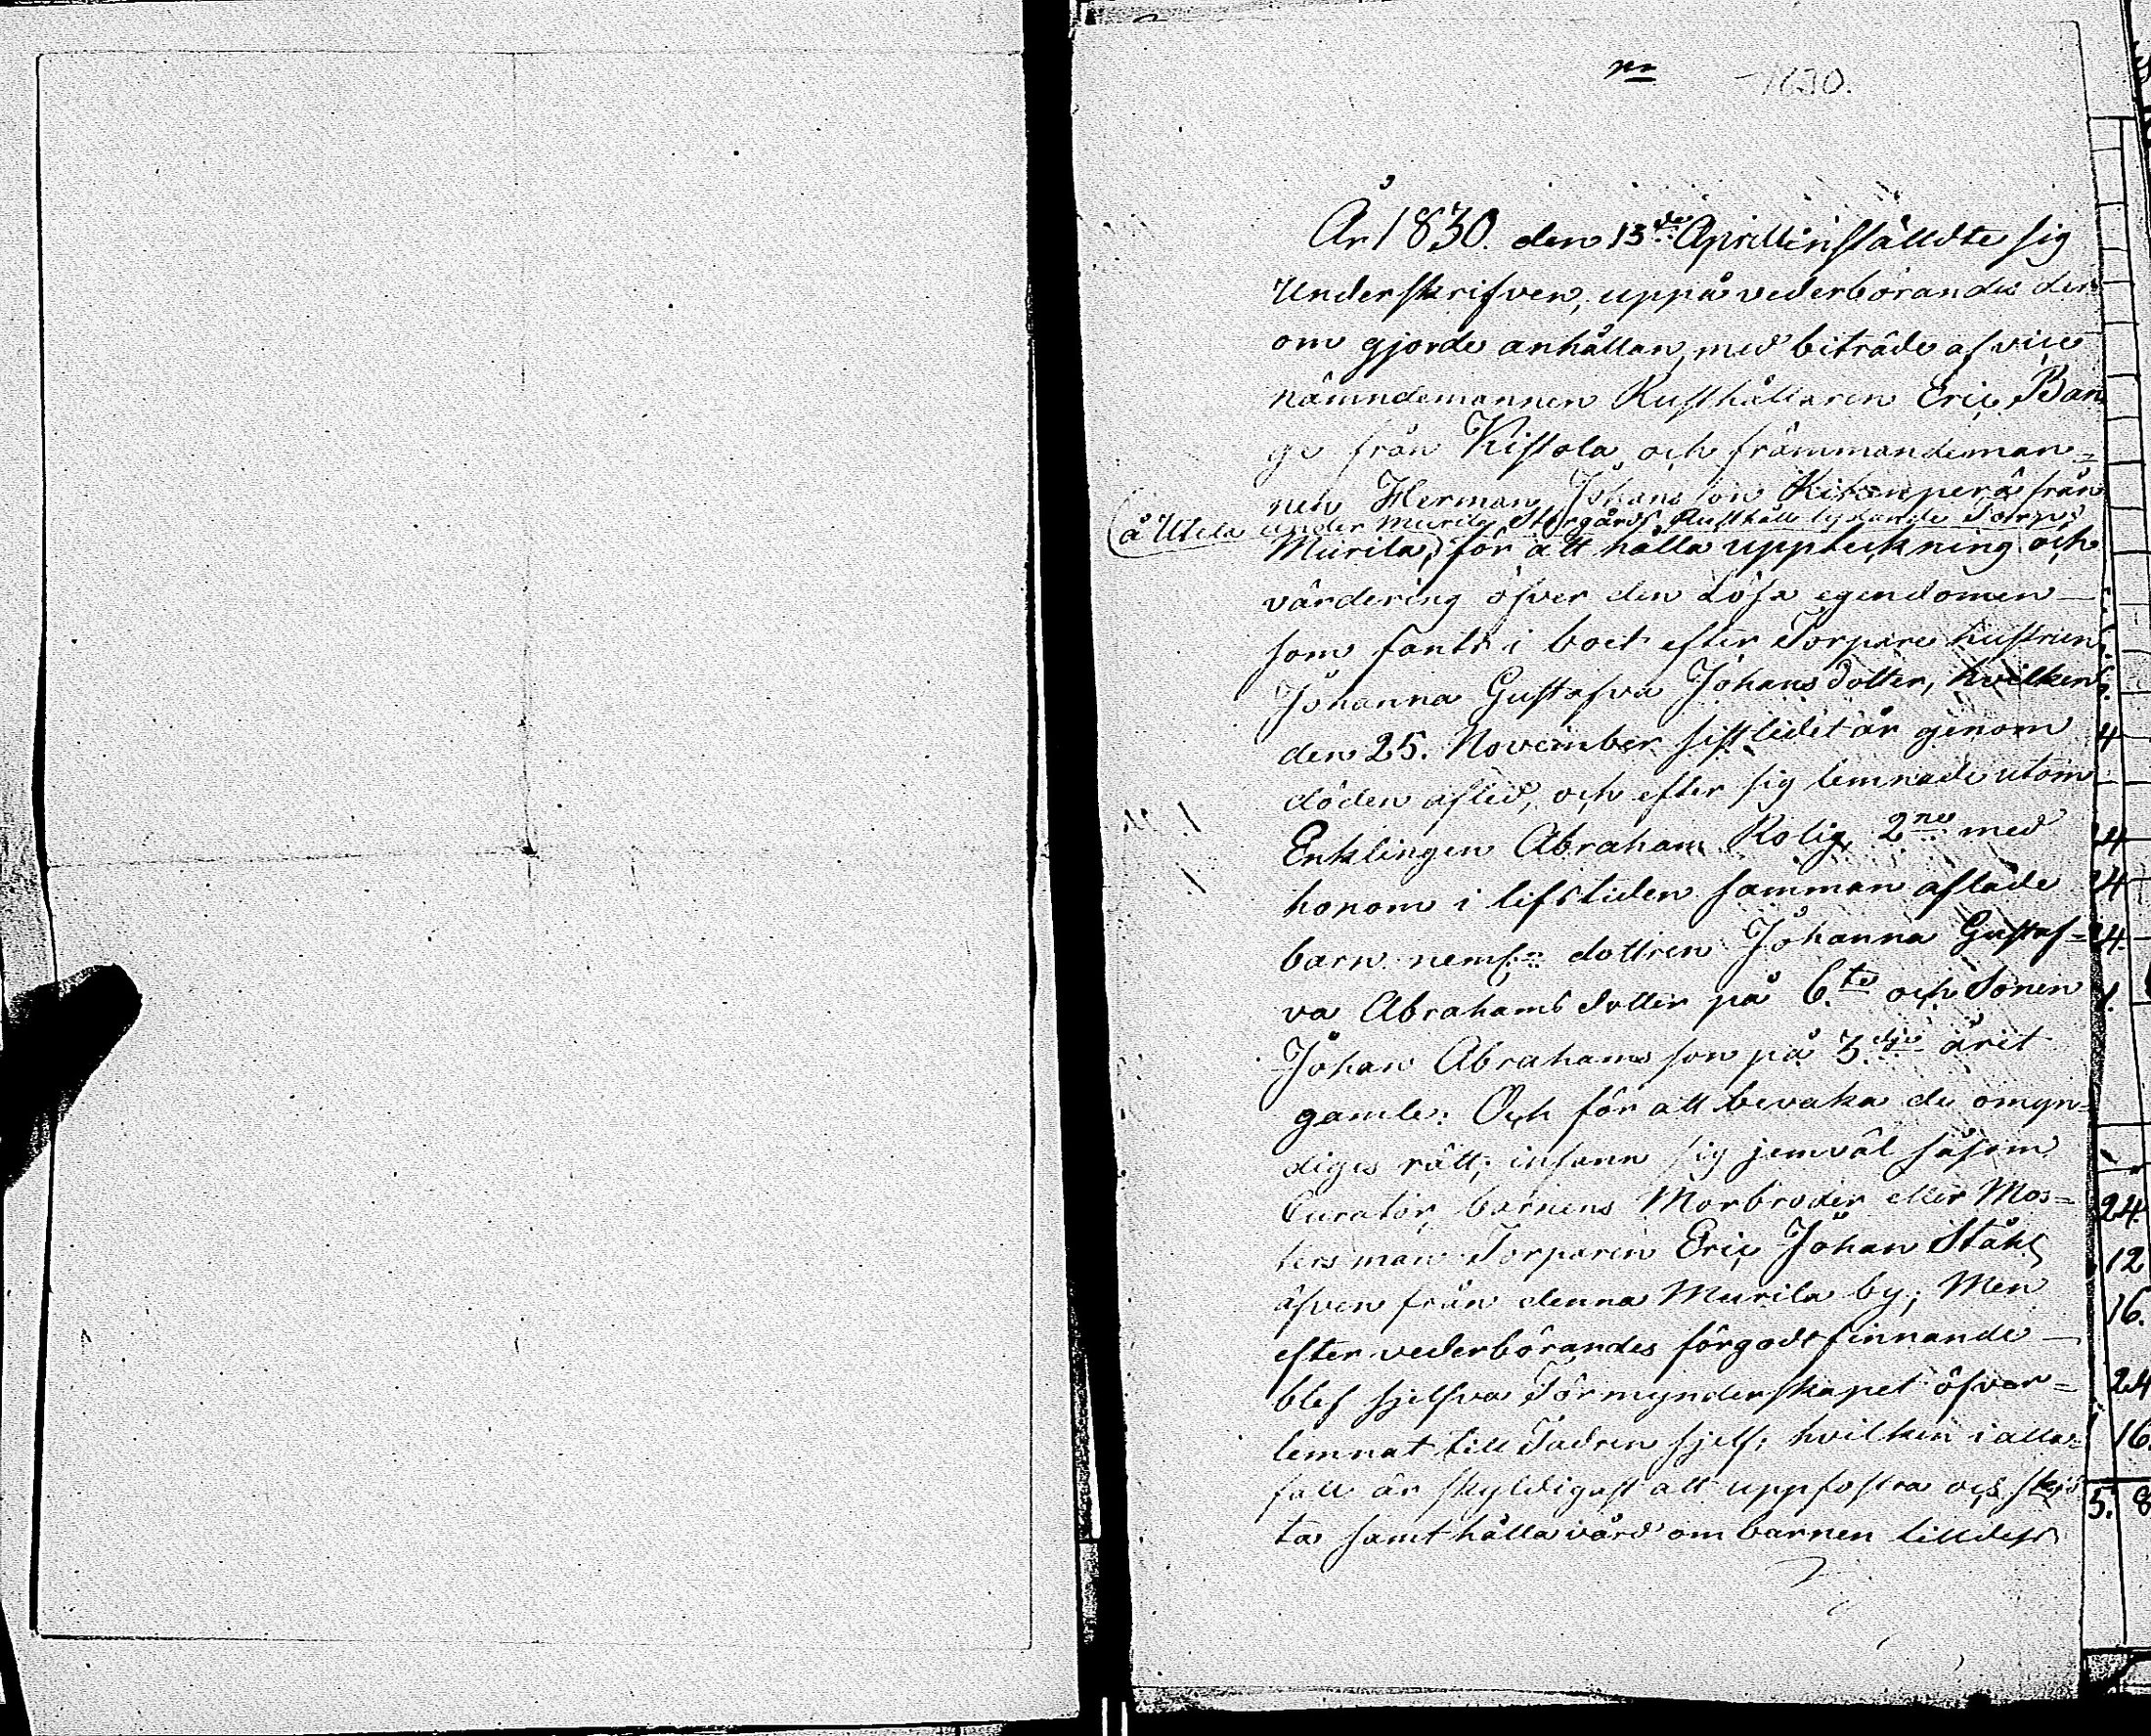 1830.
År 1830. den 13de Aprill inställdte sig
Underskrifven, uppå vederbörandes der
om gjorde anhållan, med biträde af vice
nämndemannen Rusthållaren Eric Ban
ge från Kistola och främmandeman=
nen Herman Johansson från
å Utila under Murila Storgårds Rusthåll lydande Torp
Murila, för att hålla uppteckning och
värdering öfver den Lösa egendomen
som fants i boet efter Torpare hustrun
Johanna Gustafva Johansdotter, hvilken
den 25. November sistledit år genom
döden afled, och efter sig lemnade utom
Enklingen Abraham Rolig, 2ne med
honom i lifstiden samman aflade
barn neml:n dottren Johanna Gustaf=
va Abrahams dotter på 6.te och Sonen
Johan Abrahams son på 3.dje årit
gamle. Och för att bevaka de omyn=
diges rätt, infann sig jemväl såsom
Curator, barnens Morbroder eller Mos=
ters man Torparen Eric Johan Ståhl
äfven från denna Murila by; Men
efter vederbörandes förgodtfinnande
blef sjelfva Förmynderskapet öfver=
lemnat till Fadren sjelf, hvilken i alla=
fall är skyldigast att uppfostra och skjö
ta samt hålla vård om barnen tilldess
4
24
24
24.
1.
24.
12
16.
24
16.
5. 8